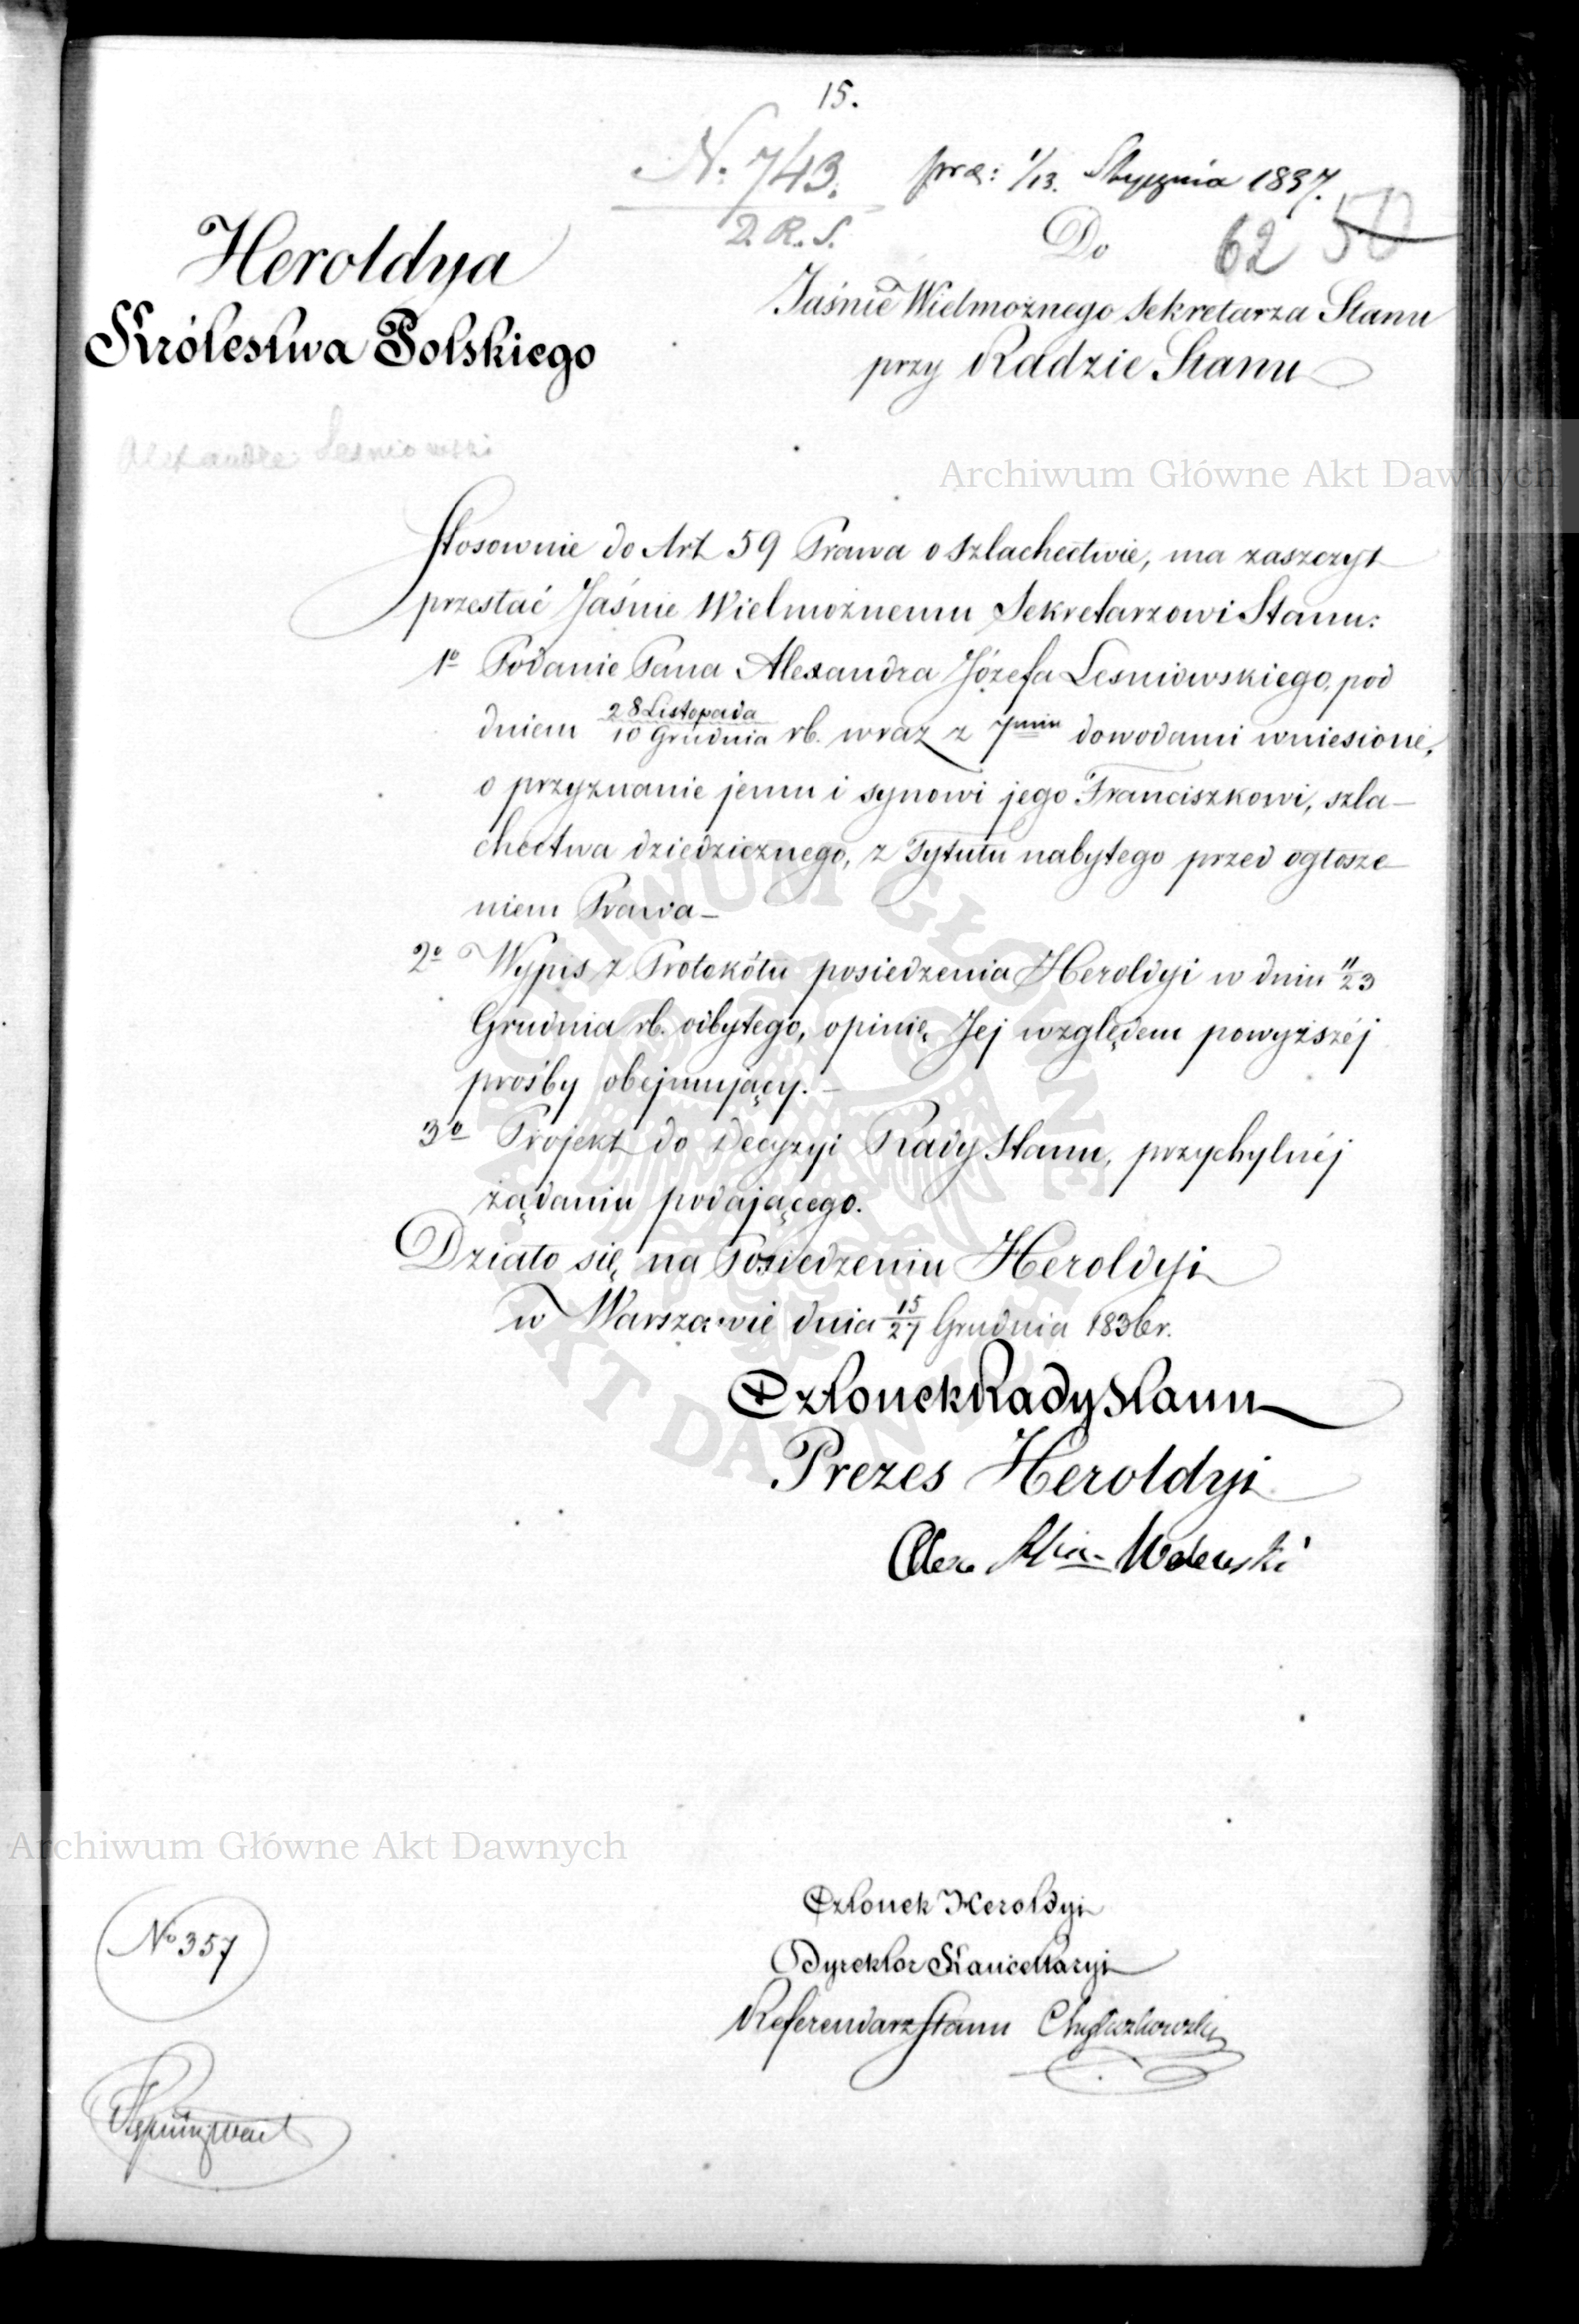 15.
N. 743. prz: 1/13. Stycznia 1837.
D. R. S.
Do 62 50
Heroldya
Królestwa Polskiego
Jaśnie Wielmożnego Sekretarza Stanu
przy Radzie Stanu
Alexander Lesniowski
Archiwum Główne Akt Dawnych
Stosownie do Art 59 Prawa o Szlachectwie, ma zaszczyt
przesłać Jaśnie Wielmożnemu Sekretarzowi Stanu:
1o Podanie Pana Alexandra Józefa Lesniowskiego, pod
dniem 28 Listopada/10 Grudnia rb. wraz z 7min dowodami wniesione,
o przyznanie jemu i synowi jego Franciszkowi, szla-
chectwa dziedzicznego, z Tytułu nabytego przed ogłosze
niem Prawa–
2o Wypis z Protokółu posiedzenia Heroldyi w dniu 11/23
Grudnia rb. odbytego, opinię Jej względem powyższéj
prośby obejmujący.–
3o Projekt do Decyzyi Rady Stanu, przychylnéj
żądaniu podającego.
Działo się na Posiedzeniu Heroldyi
w Warszawie dnia 15/27 Grudnia 1836r.
Członek Rady Stanu
Prezes Heroldyi
Alex Walewski
ARCHIWUM GŁÓWNE AKT DAWNYCH
Archiwum Główne Akt Dawnych
Członek Heroldyi
No 357
Dyrektor Kancellaryi
Referendarz Stanu